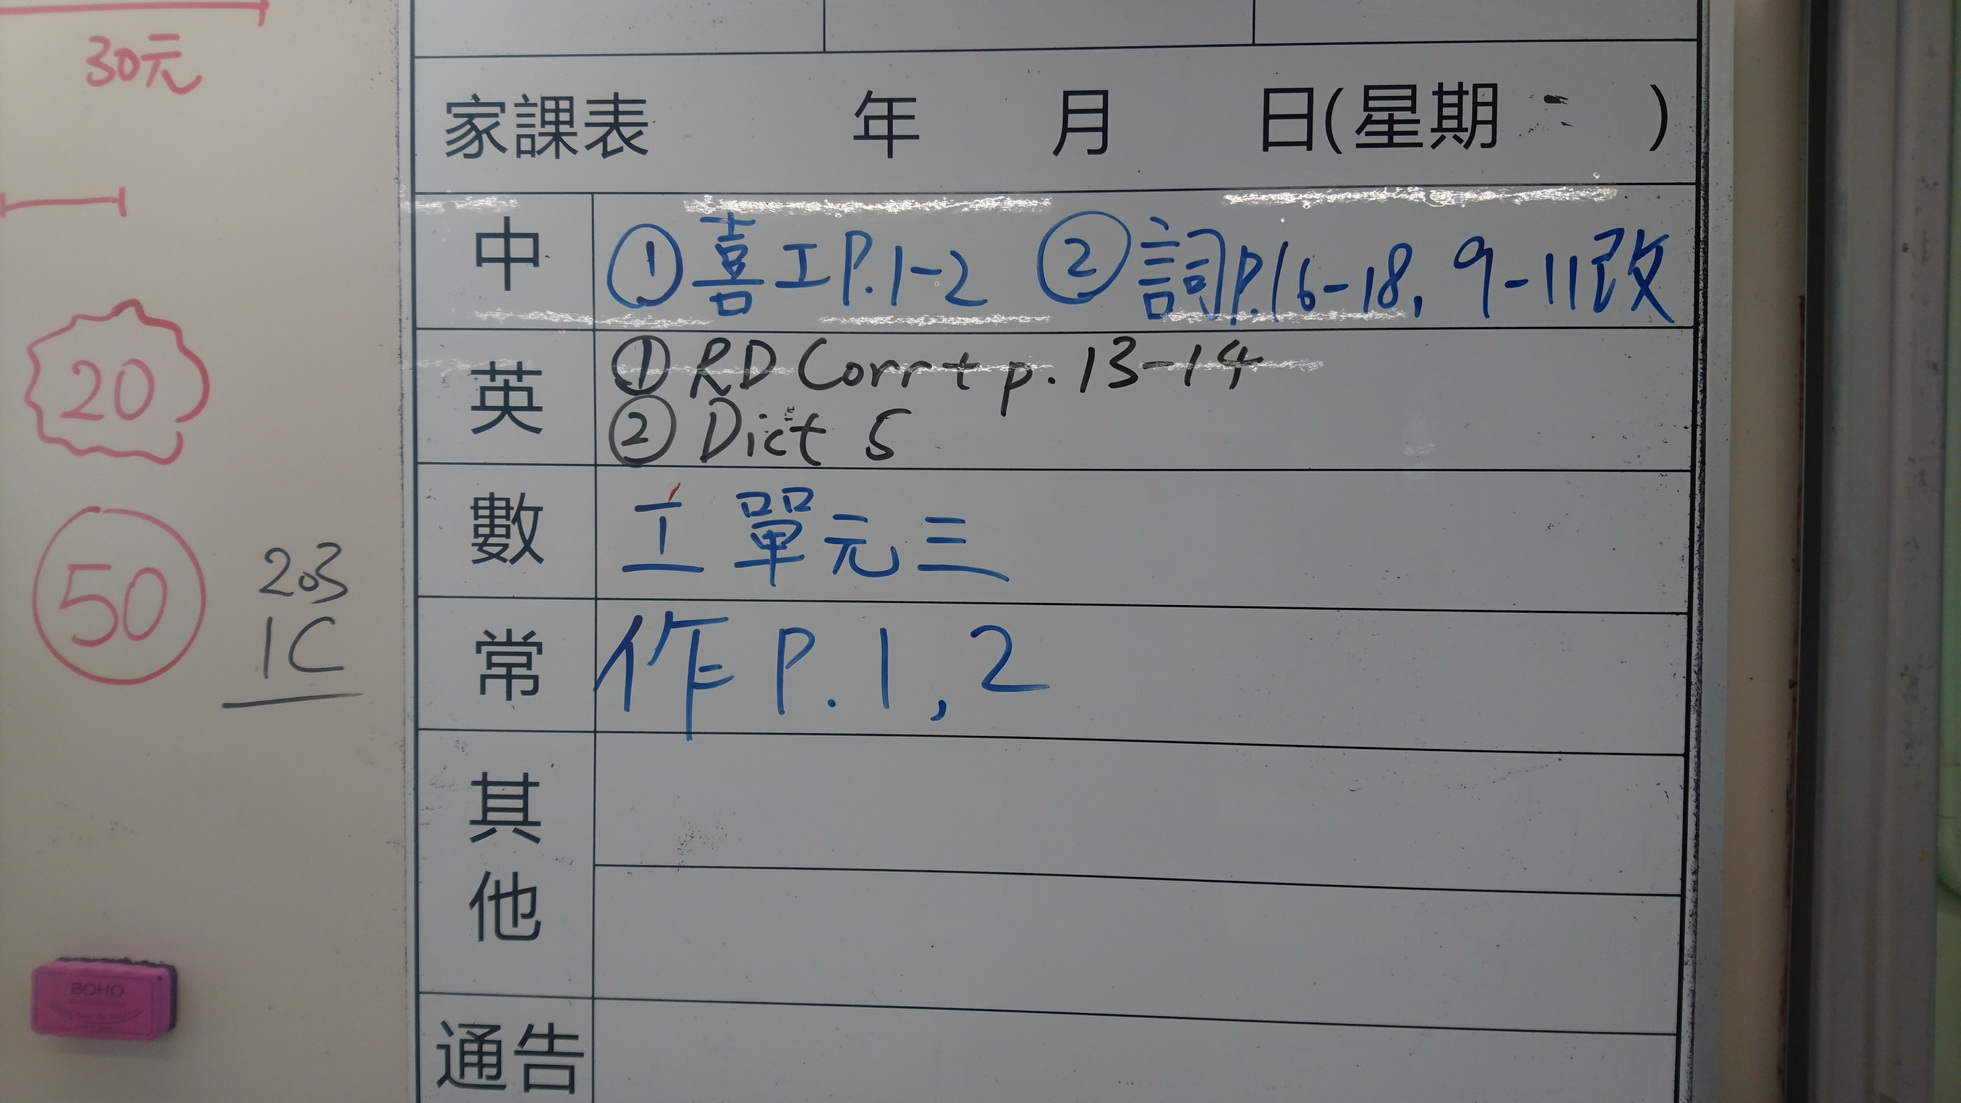 30元
20
50
203
1C
BOHO
家課表 年 月 日(星期 )
中 ①喜工P.1-2 ②詞P.16-18, 9-11改
英 ① RD Corr+ p. 13-14
② Dict 5
數 工單元三
常 作 P. 1, 2
其他
通告